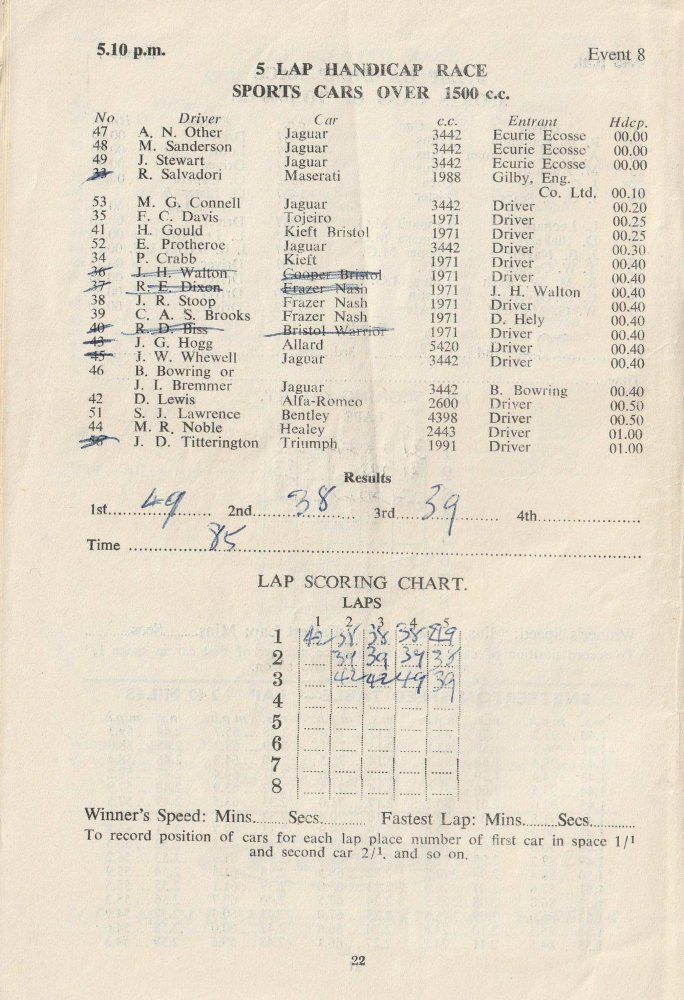 5.10 p.m. Event 8
5 LAP HANDICAP RACE
SPORTS CARS OVER 1500 c.c.
No. Driver Car c.c. Entrant Hdcp.
47 A. N. Other Jaguar 3442 Ecurie Ecosse 00.00
48 M. Sanderson Jaguar 3442 Ecurie Ecosse 00.00
49 J. Stewart Jaguar 3442 Ecurie Ecosse 00.00
33 R. Salvadori Maserati 1988 Gilby, Eng.
Co. Ltd. 00.10
53 M. G. Connell Jaguar 3442 Driver 00.20
35 F. C. Davis Tojeiro 1971 Driver 00.25
41 H. Gould Kieft Bristol 1971 Driver 00.25
52 E. Protheroe Jaguar 3442 Driver 00.30
34 P. Crabb Kieft 1971 Driver 00.40
36 J. H. Walton Cooper Bristol 1971 Driver 00.40
37 R. E. Dixon Frazer Nash 1971 J. H. Walton 00.40
38 J. R. Stoop Frazer Nash 1971 Driver 00.40
39 C. A. S. Brooks Frazer Nash 1971 D. Hely 00.40
40 R. D. Biss Bristol Warrior 1971 Driver 00.40
43 J. G. Hogg Allard 5420 Driver 00.40
45 J. W. Whewell Jaguar 3442 Driver 00.40
46 B. Bowring or
J. I. Bremmer Jaguar 3442 B. Bowring 00.40
42 D. Lewis Alfa-Romeo 2600 Driver 00.50
51 S. J. Lawrence Bentley 4398 Driver 00.50
44 M. R. Noble Healey 2443 Driver 01.00
50 J. D. Titterington Triumph 1991 Driver 01.00
Results
1st. 49 2nd. 38 3rd. 39 4th.
Time 85
LAP SCORING CHART.
LAPS
1 2 3 4 5
1 42 38 38 38 49
2 39 39 39 38
3 42 42 49 39
4
5
6
7
8
Winner's Speed: Mins. Secs. Fastest Lap: Mins. Secs.
To record position of cars for each lap place number of first car in space 1/1
and second car 2/1, and so on.
22